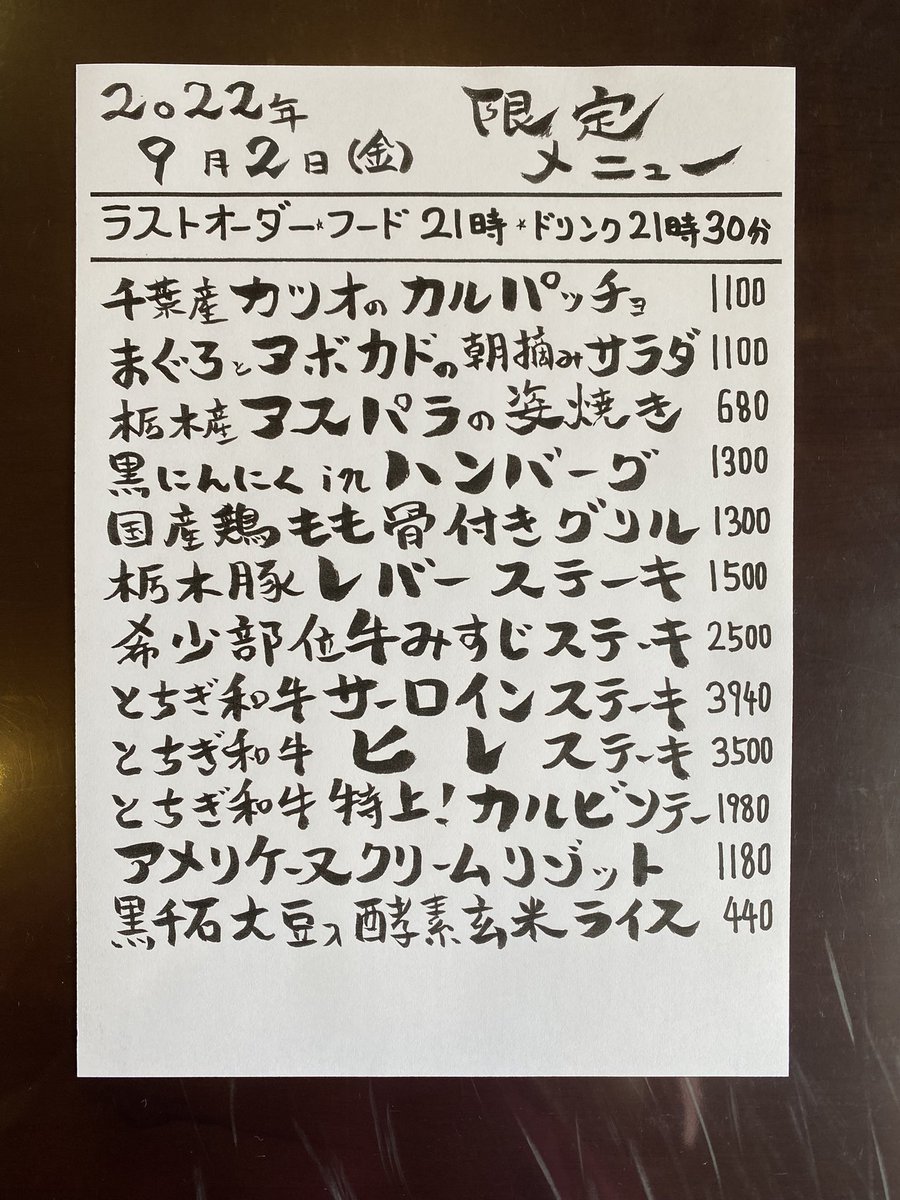 2022年
9月2日(金)
限定
メニュー
ラストオーダー*フード 21時 *ドリンク21時30分
千葉産カツオのカルパッチョ 1100
まぐろとアボカドの朝摘みサラダ 1100
栃木産アスパラの姿焼き 680
黒にんにくinハンバーグ 1300
国産鶏もも骨付きグリル 1300
栃木豚レバーステーキ 1500
希少部位牛みすじステーキ 2500
とちぎ和牛サーロインステーキ 3940
とちぎ和牛ヒレステーキ 3500
とちぎ和牛特上!カルビソテー 1980
アメリケーヌクリームリゾット 1180
黒千石大豆入酵素玄米ライス 440